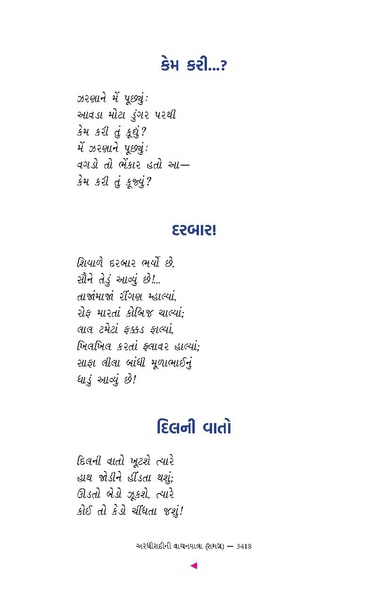 કેમ કરી...?
ઝરણાને મેં પૂછ્યુંઃ
આવડા મોટા ડુંગર પરથી
કેમ કરી તું કૂદ્યું?
મેં ઝરણાને પૂછ્યુંઃ
વગડો તો ભેંકાર હતો આ—
કેમ કરી તું કૂજ્યું?
દરબાર!
શિયાળે દરબાર ભર્યો છે,
સૌને તેડું આવ્યું છે!...
તાજાંમાજાં રીંગણ મ્હાલ્યાં,
રોફ મારતાં કોબિજ ચાલ્યાં;
લાલ ટમેટાં ફક્કડ ફાલ્યાં,
ખિલખિલ કરતાં ફ્લાવર હાલ્યાં;
સાફા લીલા બાંધી મૂળાભાઈનું
ધાડું આવ્યું છે!
દિલની વાતો
દિલની વાતો ખૂટશે ત્યારે
હાથ જોડીને હીંડતા થશું;
ઊડતો બેડો ઝૂકશે, ત્યારે
કોઈ તો કેડો ચીંધતા જશું!
અરધીસદીની વાચનયાત્રા (સમગ્ર) — 3418